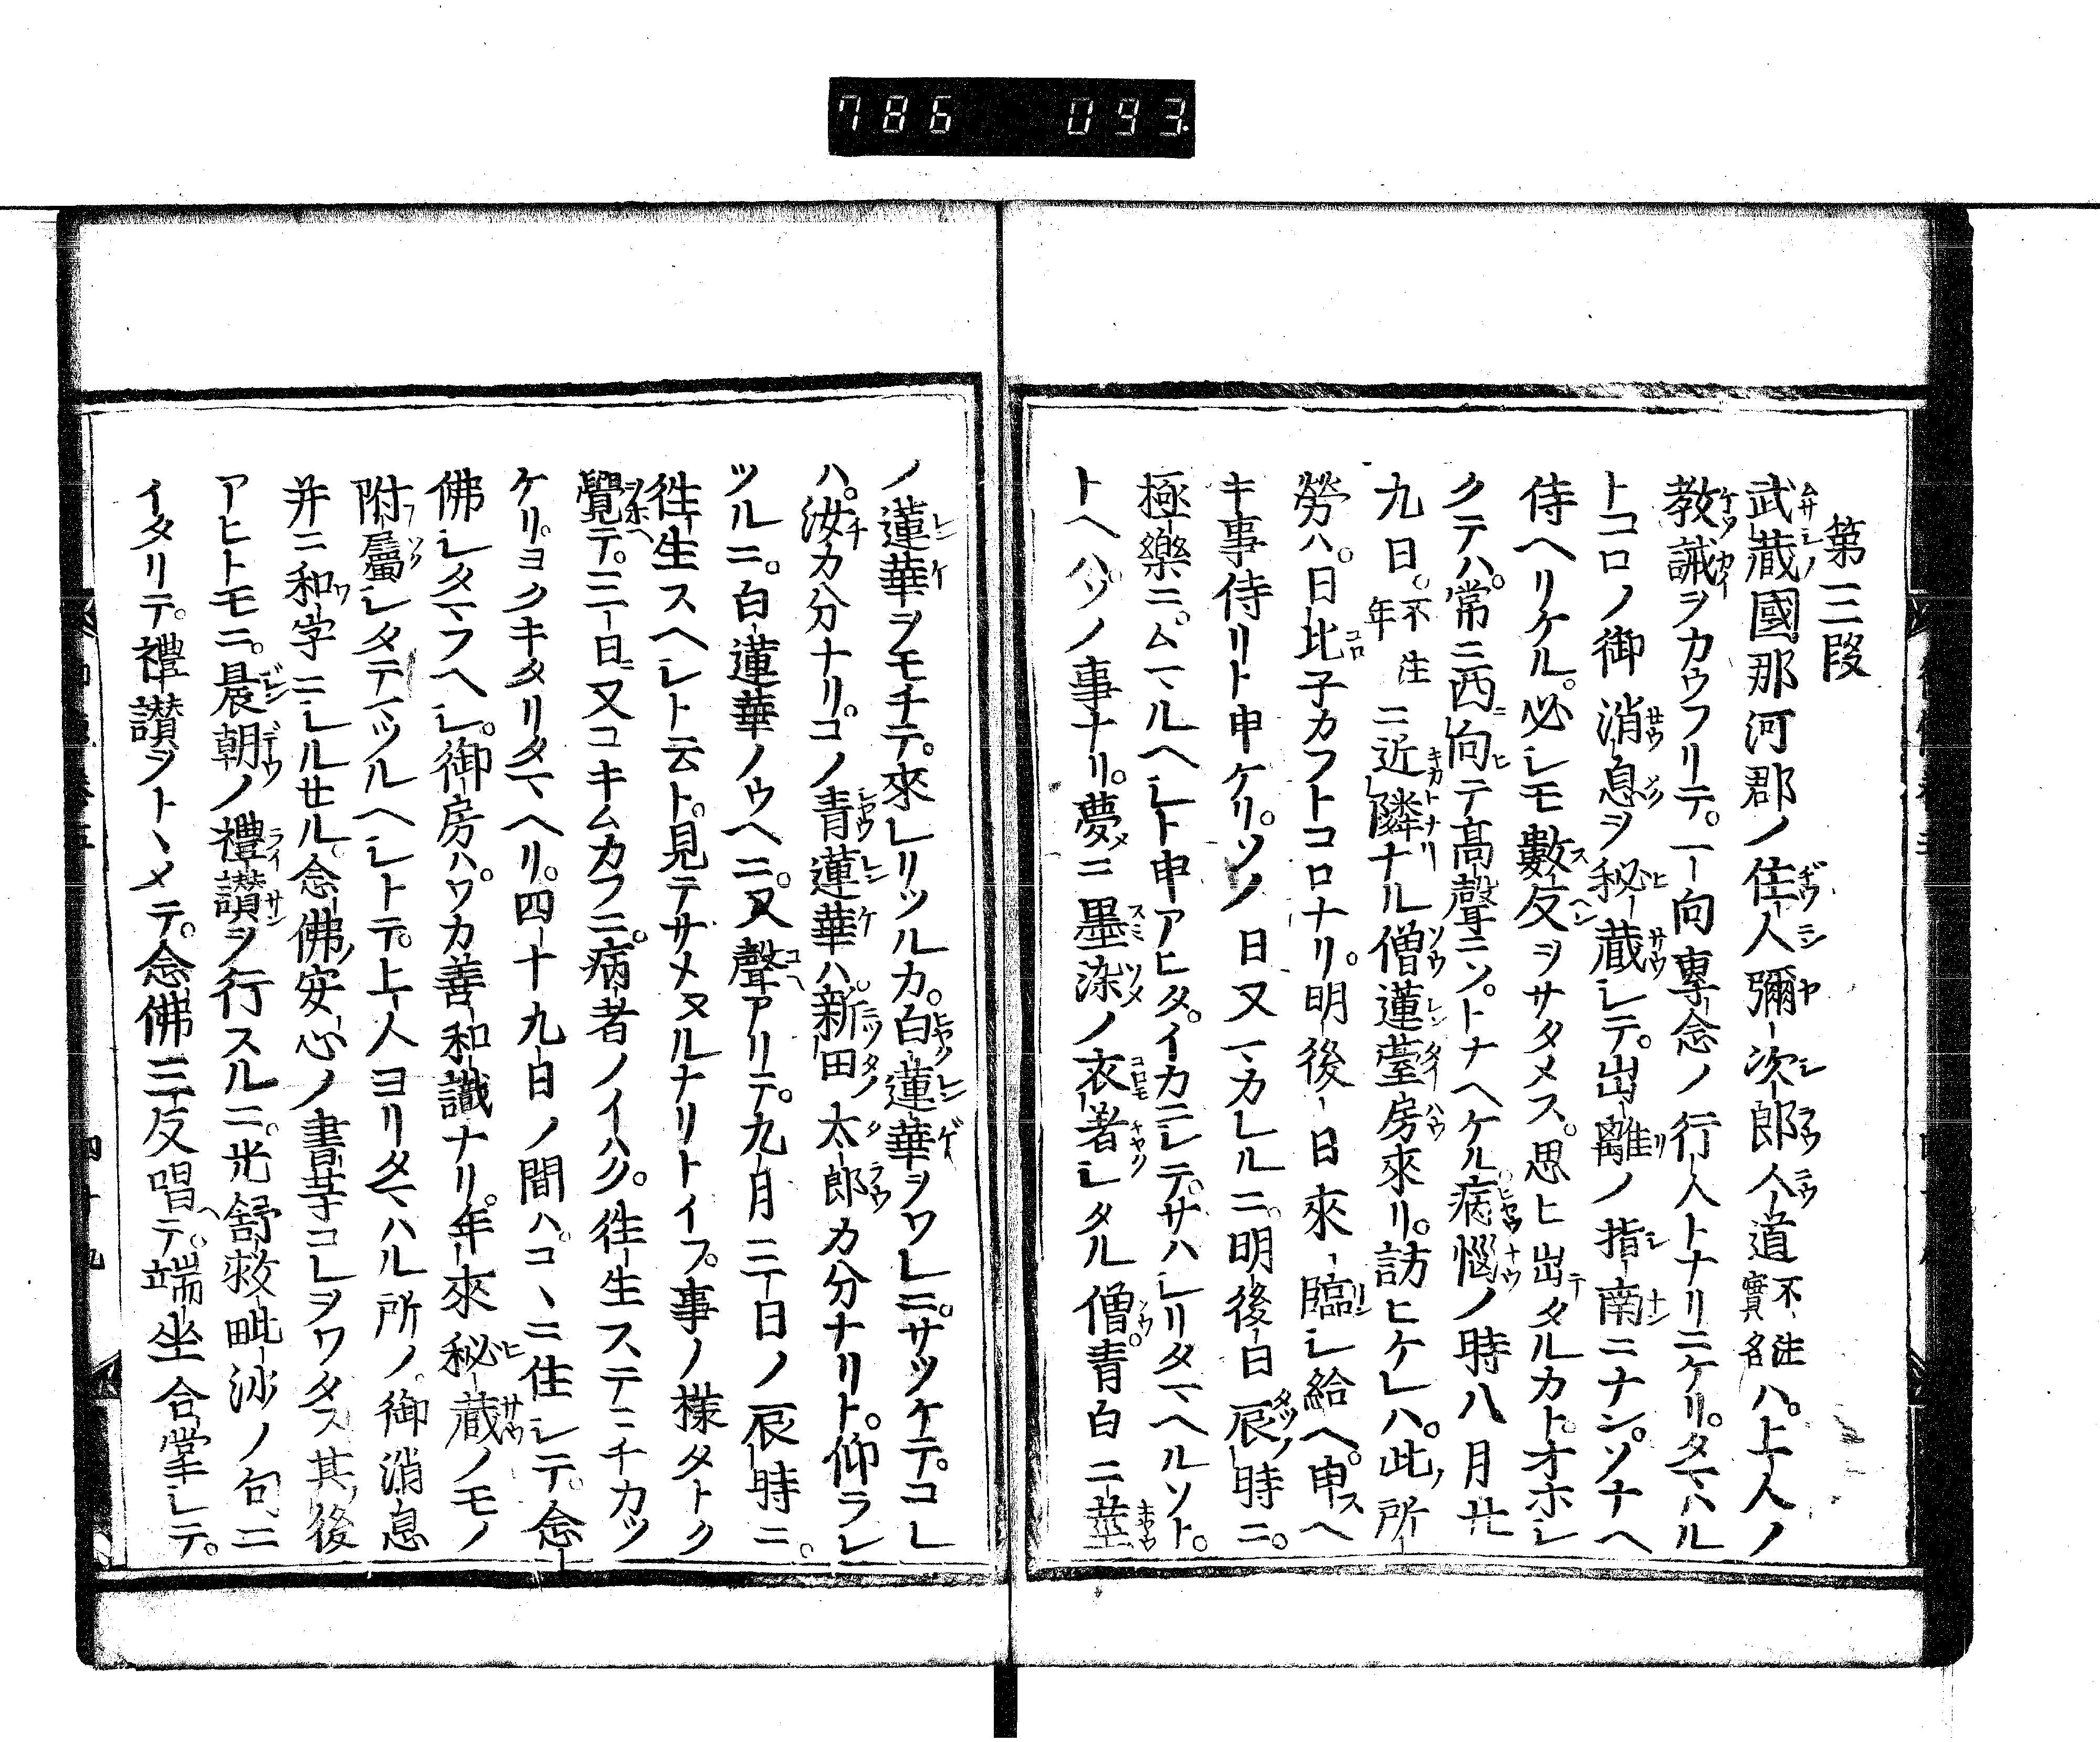 786 093
第三段
武藏國那河郡ノ住人彌次郎入道不注實名ハ。上人ノ
教誡ヲカウフリテ。一向專念ノ行人トナリニケリ。タマハル
トコロノ御消息ヲ秘藏シテ。出離ノ指南ニナンソナヘ
侍ヘリケル。必シモ數反ヲサタメス。思ヒ出タルカト。オホシ
クテハ。常ニ西向テ高聲ニソ。トナヘケル病惱ノ時八月廿
九日。不注年ニ近隣ナル僧蓮臺房來リ。訪ヒケレハ。此所
勞ハ。日比子カフトコロナリ。明後日來臨シ給ヘ。申スヘ
キ事侍リト申ケリ。ソノ日又マカレルニ。明後日辰時ニ。
極樂ニ。ムマルヘシト申アヒタ。イカニシテ。サハシリタマヘルソト。
トヘハ。ソノ事ナリ。夢ニ墨染ノ衣著シタル僧。青白二莖
ノ蓮華ヲモチテ。來レリツルカ。白蓮華ヲワレニ。サツケテ。コレ
ハ。汝カ分ナリ。コノ青蓮華ハ。新田太郎カ分ナリト。仰ラレ
ツルニ。白蓮華ノウヘニ。又聲アリテ。九月三日ノ辰時ニ。
往生スヘシト云ト。見テサメヌルナリトイフ。事ノ樣タトク
覺テ。三日ニ又コキムカフニ。病者ノイハク。往生ステニチカツ
ケリ。ヨクキタリタマヘリ。四十九日ノ間ハ。コヽニ住シテ。念
佛シタマフヘシ。御房ハ。ワカ善和識ナリ。年來秘藏ノモノ
附屬シタテマツルヘシトテ。上人ヨリタマハル所ノ。御消息
并ニ和字ニシルセル。念佛ノ安心ノ書等コレヲワタス其後
アヒトモニ。晨朝ノ禮讃ヲ行スルニ。光舒救毗沙ノ句ニ
イタリテ。禮讃ヲトヽメテ。念佛三反唱テ。端坐合掌シテ。